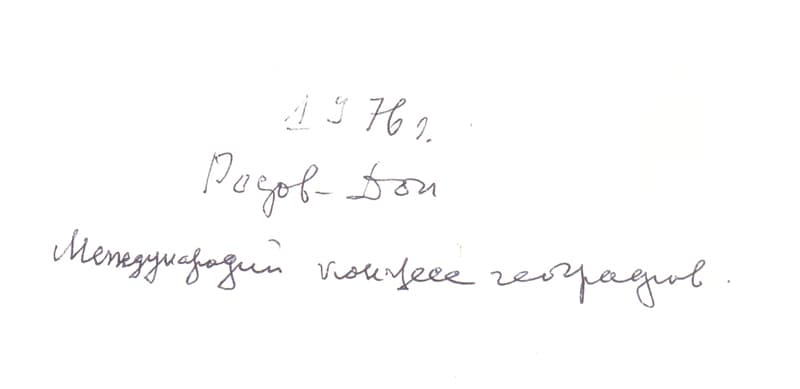 1976 г.
Росдов-Дон
Международий конгресс географов.